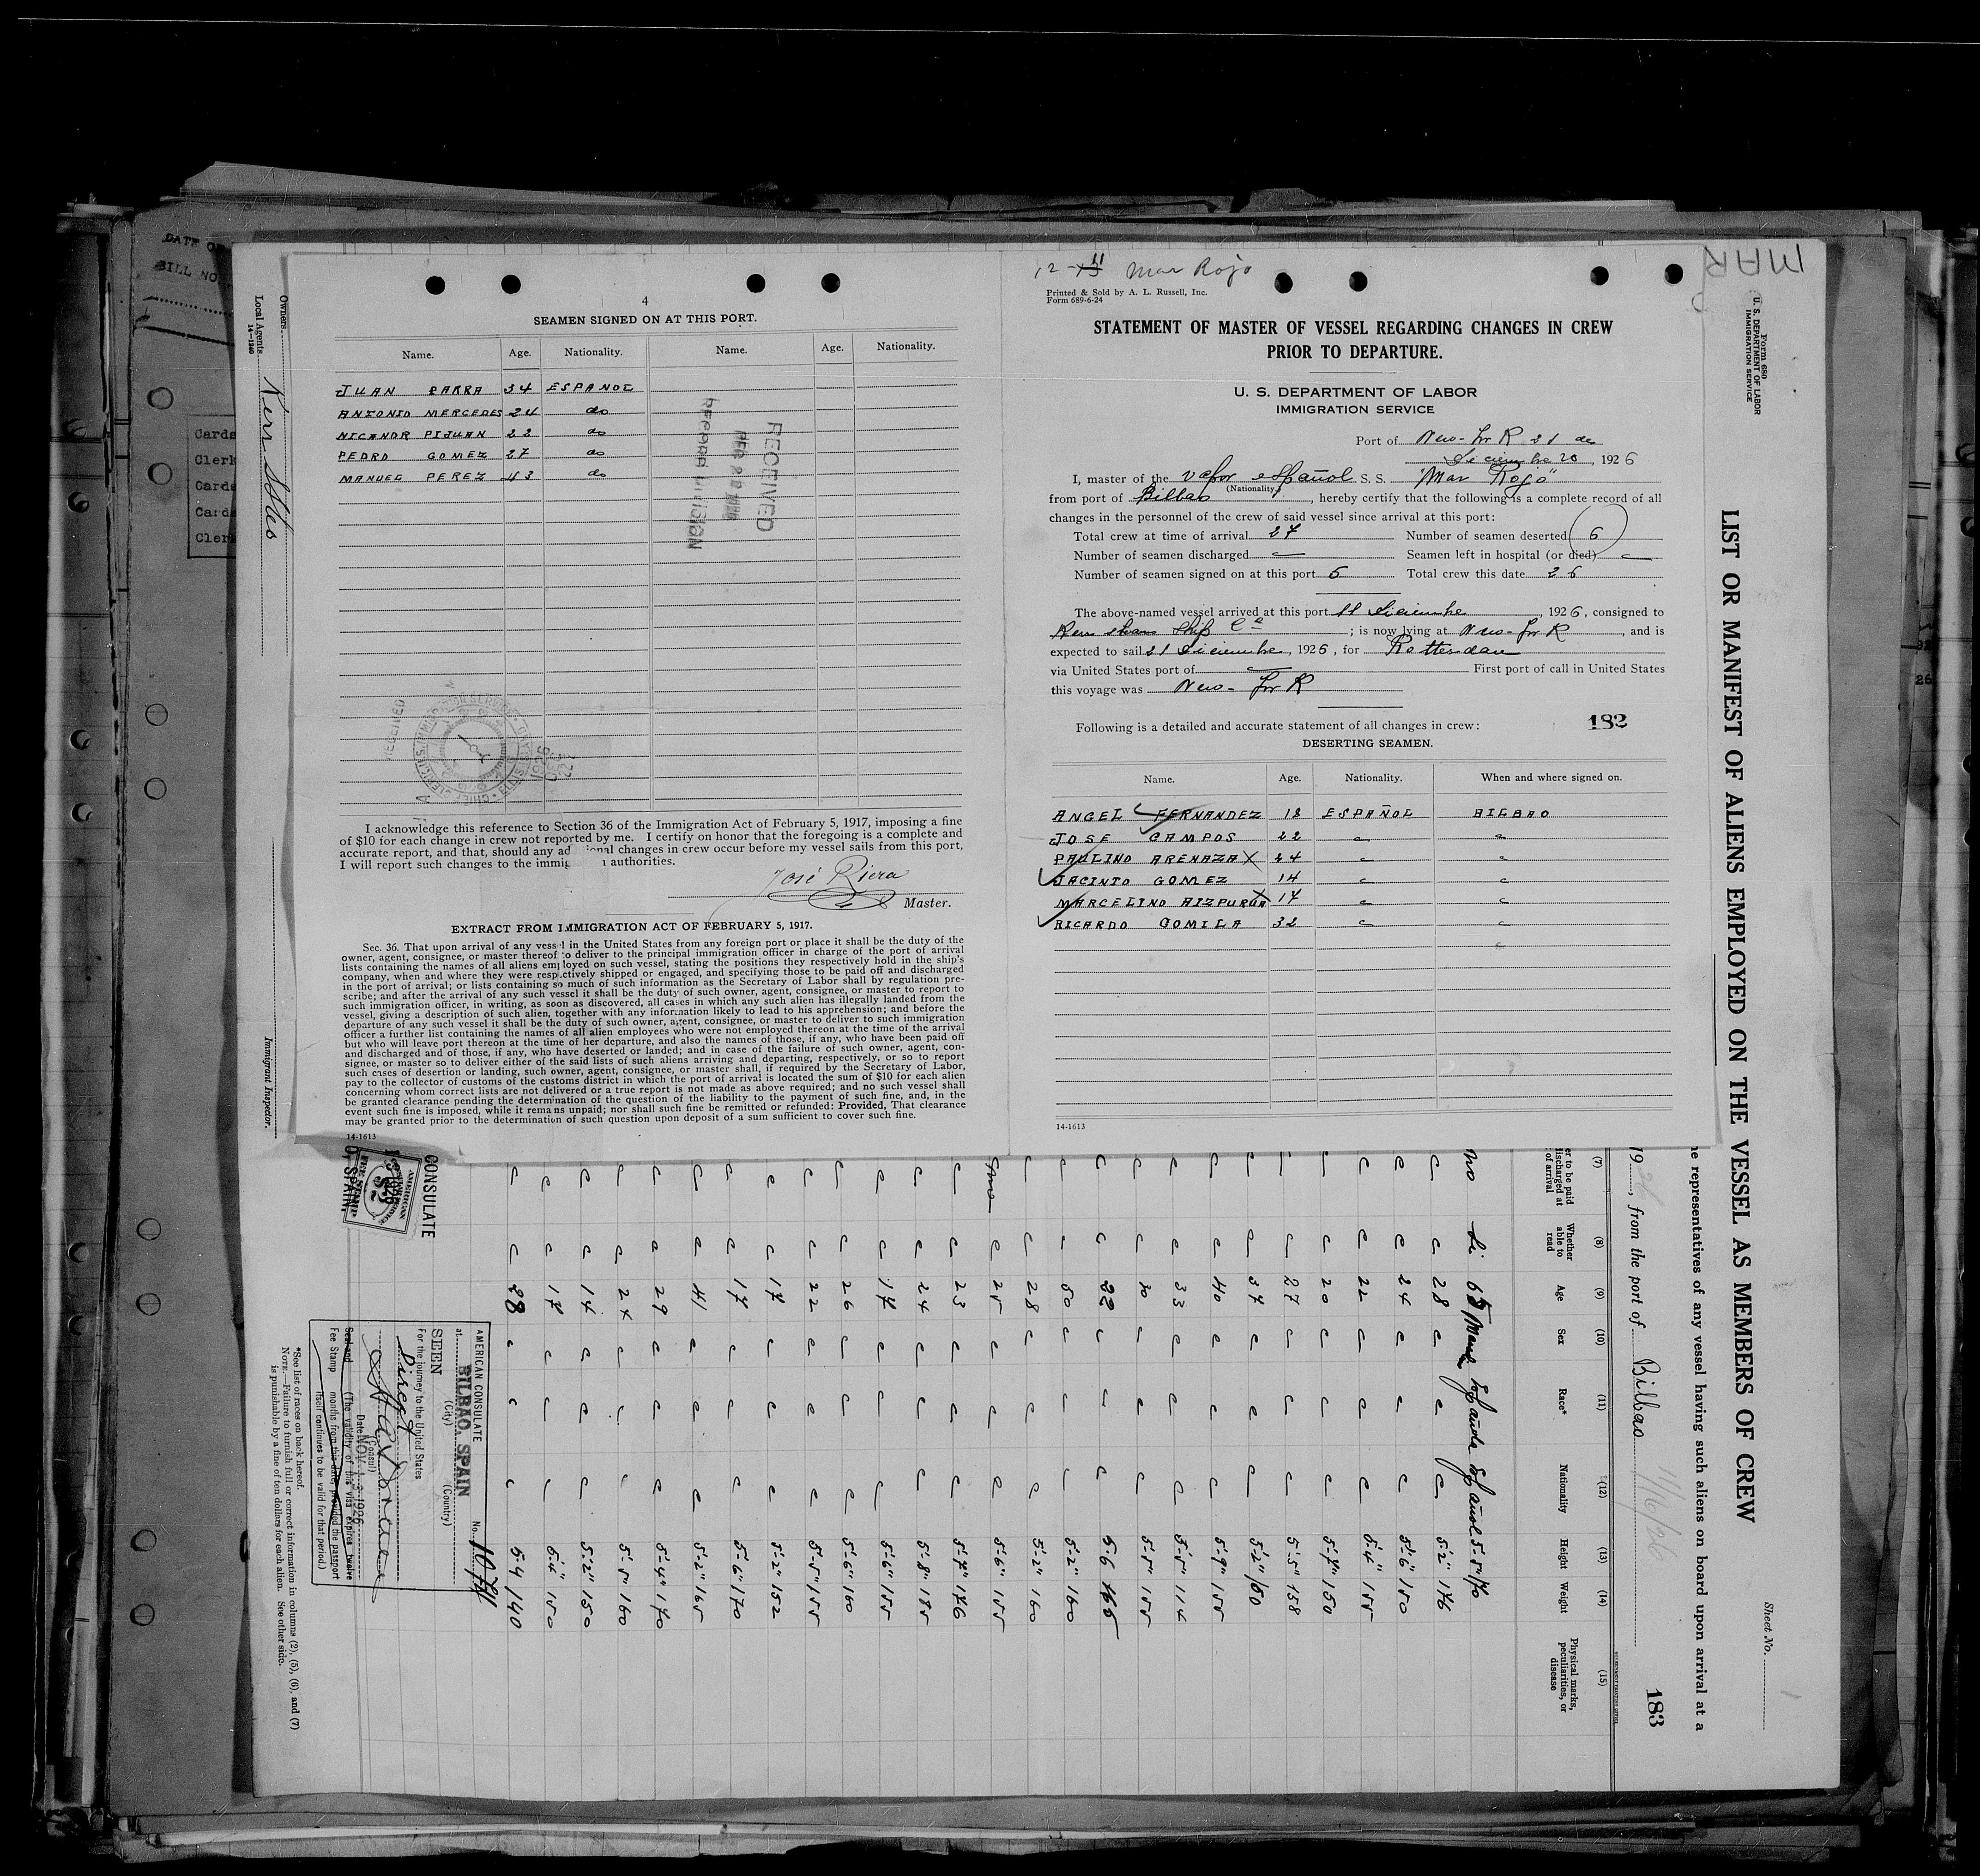 DATE OF
BILL NO.
Cards
Clerk
Cards
Cards
Clerk
Owners
Local Agents Kerr SS Lines
14-1240
Immigrant Inspector.
4
SEAMEN SIGNED ON AT THIS PORT.
Name. Age. Nationality. Name. Age. Nationality.
JUAN PARRA 34 ESPAÑOL
ANTONIO MERCEDES 24 do
NICANOR PIJUAN 22 do
PEDRO GOMEZ 27 do
MANUEL PEREZ 43 do
RECEIVED
RECORD DIVISION
RECEIVED
I acknowledge this reference to Section 36 of the Immigration Act of February 5, 1917, imposing a fine
of $10 for each change in crew not reported by me. I certify on honor that the foregoing is a complete and
accurate report, and that, should any ad ional changes in crew occur before my vessel sails from this port,
I will report such changes to the immig n authorities.
José Riera
Master.
EXTRACT FROM IMMIGRATION ACT OF FEBRUARY 5, 1917.
Sec. 36. That upon arrival of any vessel in the United States from any foreign port or place it shall be the duty of the
owner, agent, consignee, or master thereof to deliver to the principal immigration officer in charge of the port of arrival
lists containing the names of all aliens employed on such vessel, stating the positions they respectively hold in the ship's
company, when and where they were respectively shipped or engaged, and specifying those to be paid off and discharged
in the port of arrival; or lists containing so much of such information as the Secretary of Labor shall by regulation pre-
scribe; and after the arrival of any such vessel it shall be the duty of such owner, agent, consignee, or master to report to
such immigration officer, in writing, as soon as discovered, all cases in which any such alien has illegally landed from the
vessel, giving a description of such alien, together with any information likely to lead to his apprehension; and before the
departure of any such vessel it shall be the duty of such owner, agent, consignee, or master to deliver to such immigration
officer a further list containing the names of all alien employees who were not employed thereon at the time of the arrival
but who will leave port thereon at the time of her departure, and also the names of those, if any, who have been paid off
and discharged and of those, if any, who have deserted or landed; and in case of the failure of such owner, agent, con-
signee, or master so to deliver either of the said lists of such aliens arriving and departing, respectively, or so to report
such cases of desertion or landing, such owner, agent, consignee, or master shall, if required by the Secretary of Labor,
pay to the collector of customs of the customs district in which the port of arrival is located the sum of $10 for each alien
concerning whom correct lists are not delivered or a true report is not made as above required; and no such vessel shall
be granted clearance pending the determination of the question of the liability to the payment of such fine, and, in the
event such fine is imposed, while it remains unpaid; nor shall such fine be remitted or refunded: Provided, That clearance
may be granted prior to the determination of such question upon deposit of a sum sufficient to cover such fine.
14-1613
12 - 11 Mar Rojo
Printed & Sold by A. L. Russell, Inc.
Form 689-6-24
STATEMENT OF MASTER OF VESSEL REGARDING CHANGES IN CREW
PRIOR TO DEPARTURE.
U. S. DEPARTMENT OF LABOR
IMMIGRATION SERVICE
Port of New-York 21 de
Diciembre 20, 1926
I, master of the vapor español S. S. "Mar Rojo"
(Nationality.)
from port of Bilbao, hereby certify that the following is a complete record of all
changes in the personnel of the crew of said vessel since arrival at this port:
Total crew at time of arrival 27 Number of seamen deserted 6
Number of seamen discharged Seamen left in hospital (or died)
Number of seamen signed on at this port 5 Total crew this date 26
The above-named vessel arrived at this port 11 Diciembre, 1926, consigned to
Kerr steam Ship Cº; is now lying at New-York, and is
expected to sail 21 Diciembre, 1926, for Rotterdam
via United States port of First port of call in United States
this voyage was New-York
Following is a detailed and accurate statement of all changes in crew: 182
DESERTING SEAMEN.
Name. Age. Nationality. When and where signed on.
ANGEL FERNANDEZ 18 ESPAÑOL BILBAO
JOSE CAMPOS 22 " "
PAULINO ARENAZA 24 " "
JACINTO GOMEZ 14 " "
MARCELINO AIZPURUA 17 " "
RICARDO GOMILA 32 " "
14-1613
MAR
Form 680
U. S. DEPARTMENT OF LABOR
IMMIGRATION SERVICE
LIST OR MANIFEST OF ALIENS EMPLOYED ON THE VESSEL AS MEMBERS OF CREW
Sheet No. 1
he representatives of any vessel having such aliens on board upon arrival at a
1926, from the port of Bilbao 11/16/26
183
(7) (8) (9) (10) (11) (12) (13) (14) (15)
er to be paid
discharged at
of arrival
Whether
able to
read
Age
Sex
Race*
Nationality
Height
Weight
Physical marks,
peculiarities, or
disease
no si
28 5-2" 176
24 5-6" 180
22 5-4" 155
20 5-7" 150
27 5-5" 158
37 5-2"
40 5-9" 155
33 5-5" 114
30 5-5" 155
5-6
50 5-2" 160
28 5-2" 160
25 5-6" 155
23 5-7" 176
24 5-8" 185
17 5-6" 155
26 5-6" 160
22 5-5" 155
17 5-2" 152
17 5-6" 170
41 5-2" 165
29 5-4" 170
24 5-5" 160
14 5-2" 150
17 5-4" 150
28 5-4 140
CONSULATE
O, SPAIN
AMERICAN
CONSULAR SERVICE
$2
FEE STAMP
AMERICAN CONSULATE No. 1074
at BILBAO, SPAIN
(City) (Country)
SEEN
For the journey to the United States
Direct
(Consul)
Date NOV 13 1926
(The validity of this visa expires twelve
months from this date, provided the passport
itself continues to be valid for that period.)
Seal and
Fee Stamp
*See list of races on back hereof.
NOTE.—Failure to furnish full or correct information in columns (2), (5), (6), and (7)
is punishable by a fine of ten dollars for each alien. See other side.